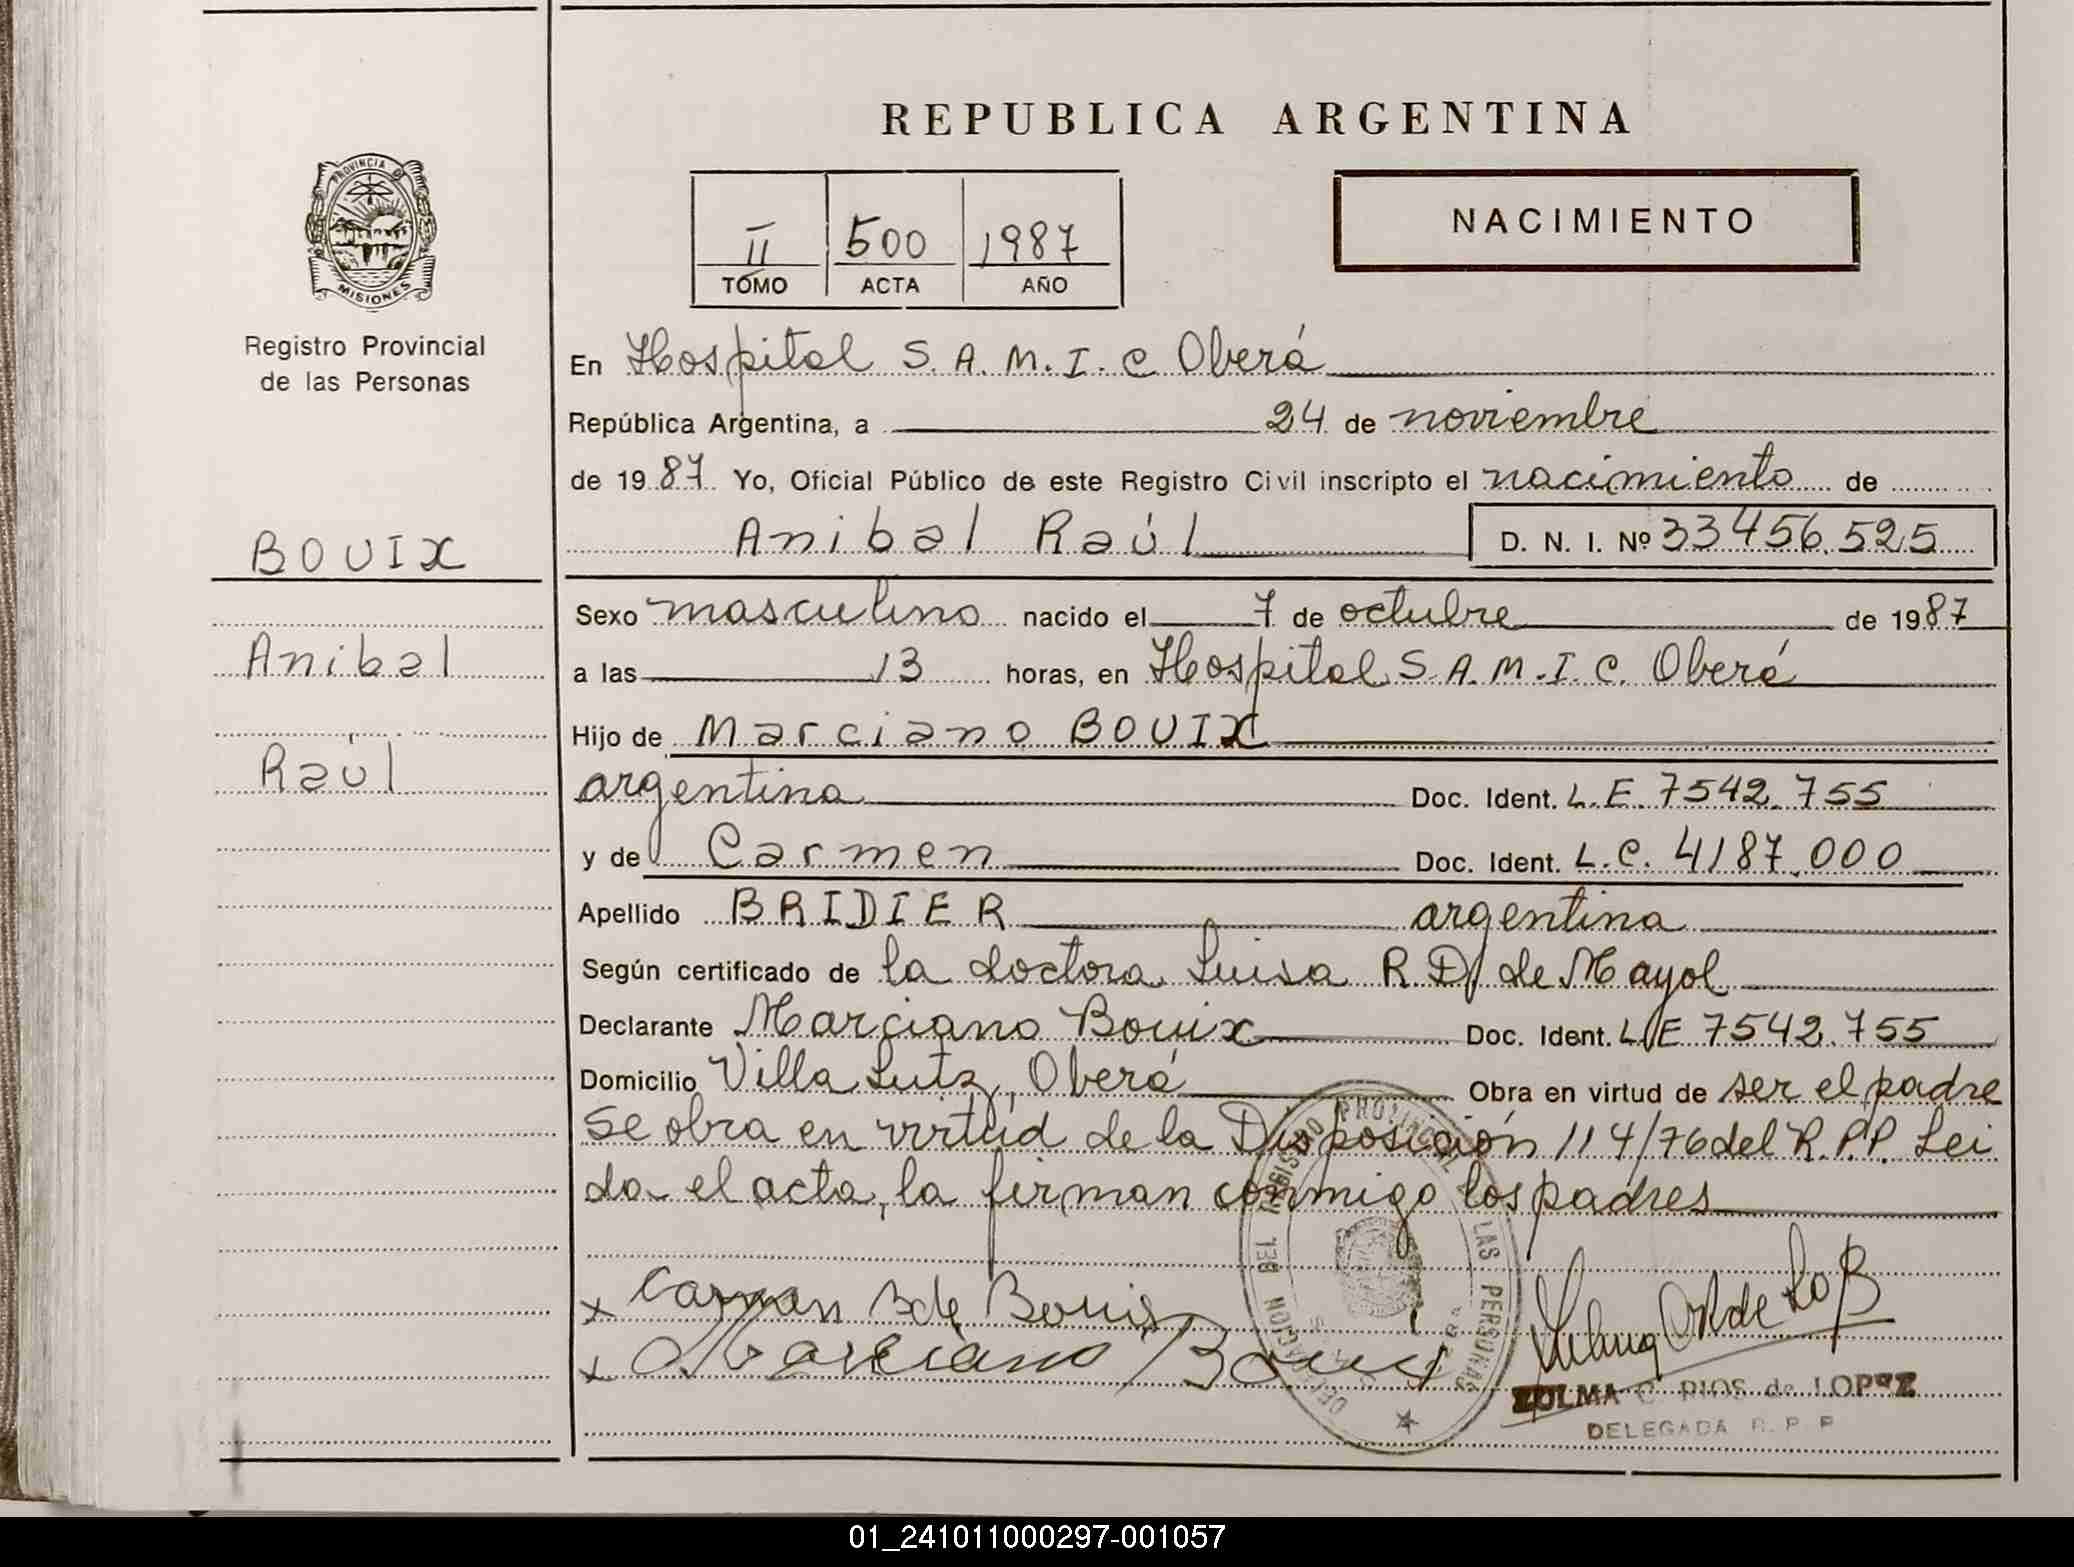 REPUBLICA ARGENTINA
PROVINCIA D
MISIONES
Registro Provincial
de las Personas
II 500 1987
TOMO ACTA AÑO
NACIMIENTO
En Hospital S.A.M.I.C. Oberá
República Argentina, a 24 de noviembre
de 1987 Yo, Oficial Público de este Registro Civil inscripto el nacimiento de
BOUIX
Anibal
Raúl
Anibal Raúl D. N. I. Nº 33456.525
Sexo masculino nacido el 7 de octubre de 1987
a las 13 horas, en Hospital S.A.M.I.C. Oberá
Hijo de Marciano BOUIX
argentina Doc. Ident. L.E. 7542.755
y de Carmen Doc. Ident. L.C. 4187.000
Apellido BRIDIER argentina
Según certificado de la doctora Luisa R.D. de Mayol
Declarante Marciano Bouix Doc. Ident. L.E 7542.755
Domicilio Villa Lutz, Oberá Obra en virtud de ser el padre
se obra en virtud de la Disposición 114/76 del R.P.P. Lei
da el acta, la firman conmigo los padres
x Carmen B de Bouix
x Marciano Bouix
DELEGACION DEL REGISTRO PROVINCIAL LAS PERSONAS
ZULMA C. RIOS de LOPEZ
DELEGADA R. P. P
01_241011000297-001057